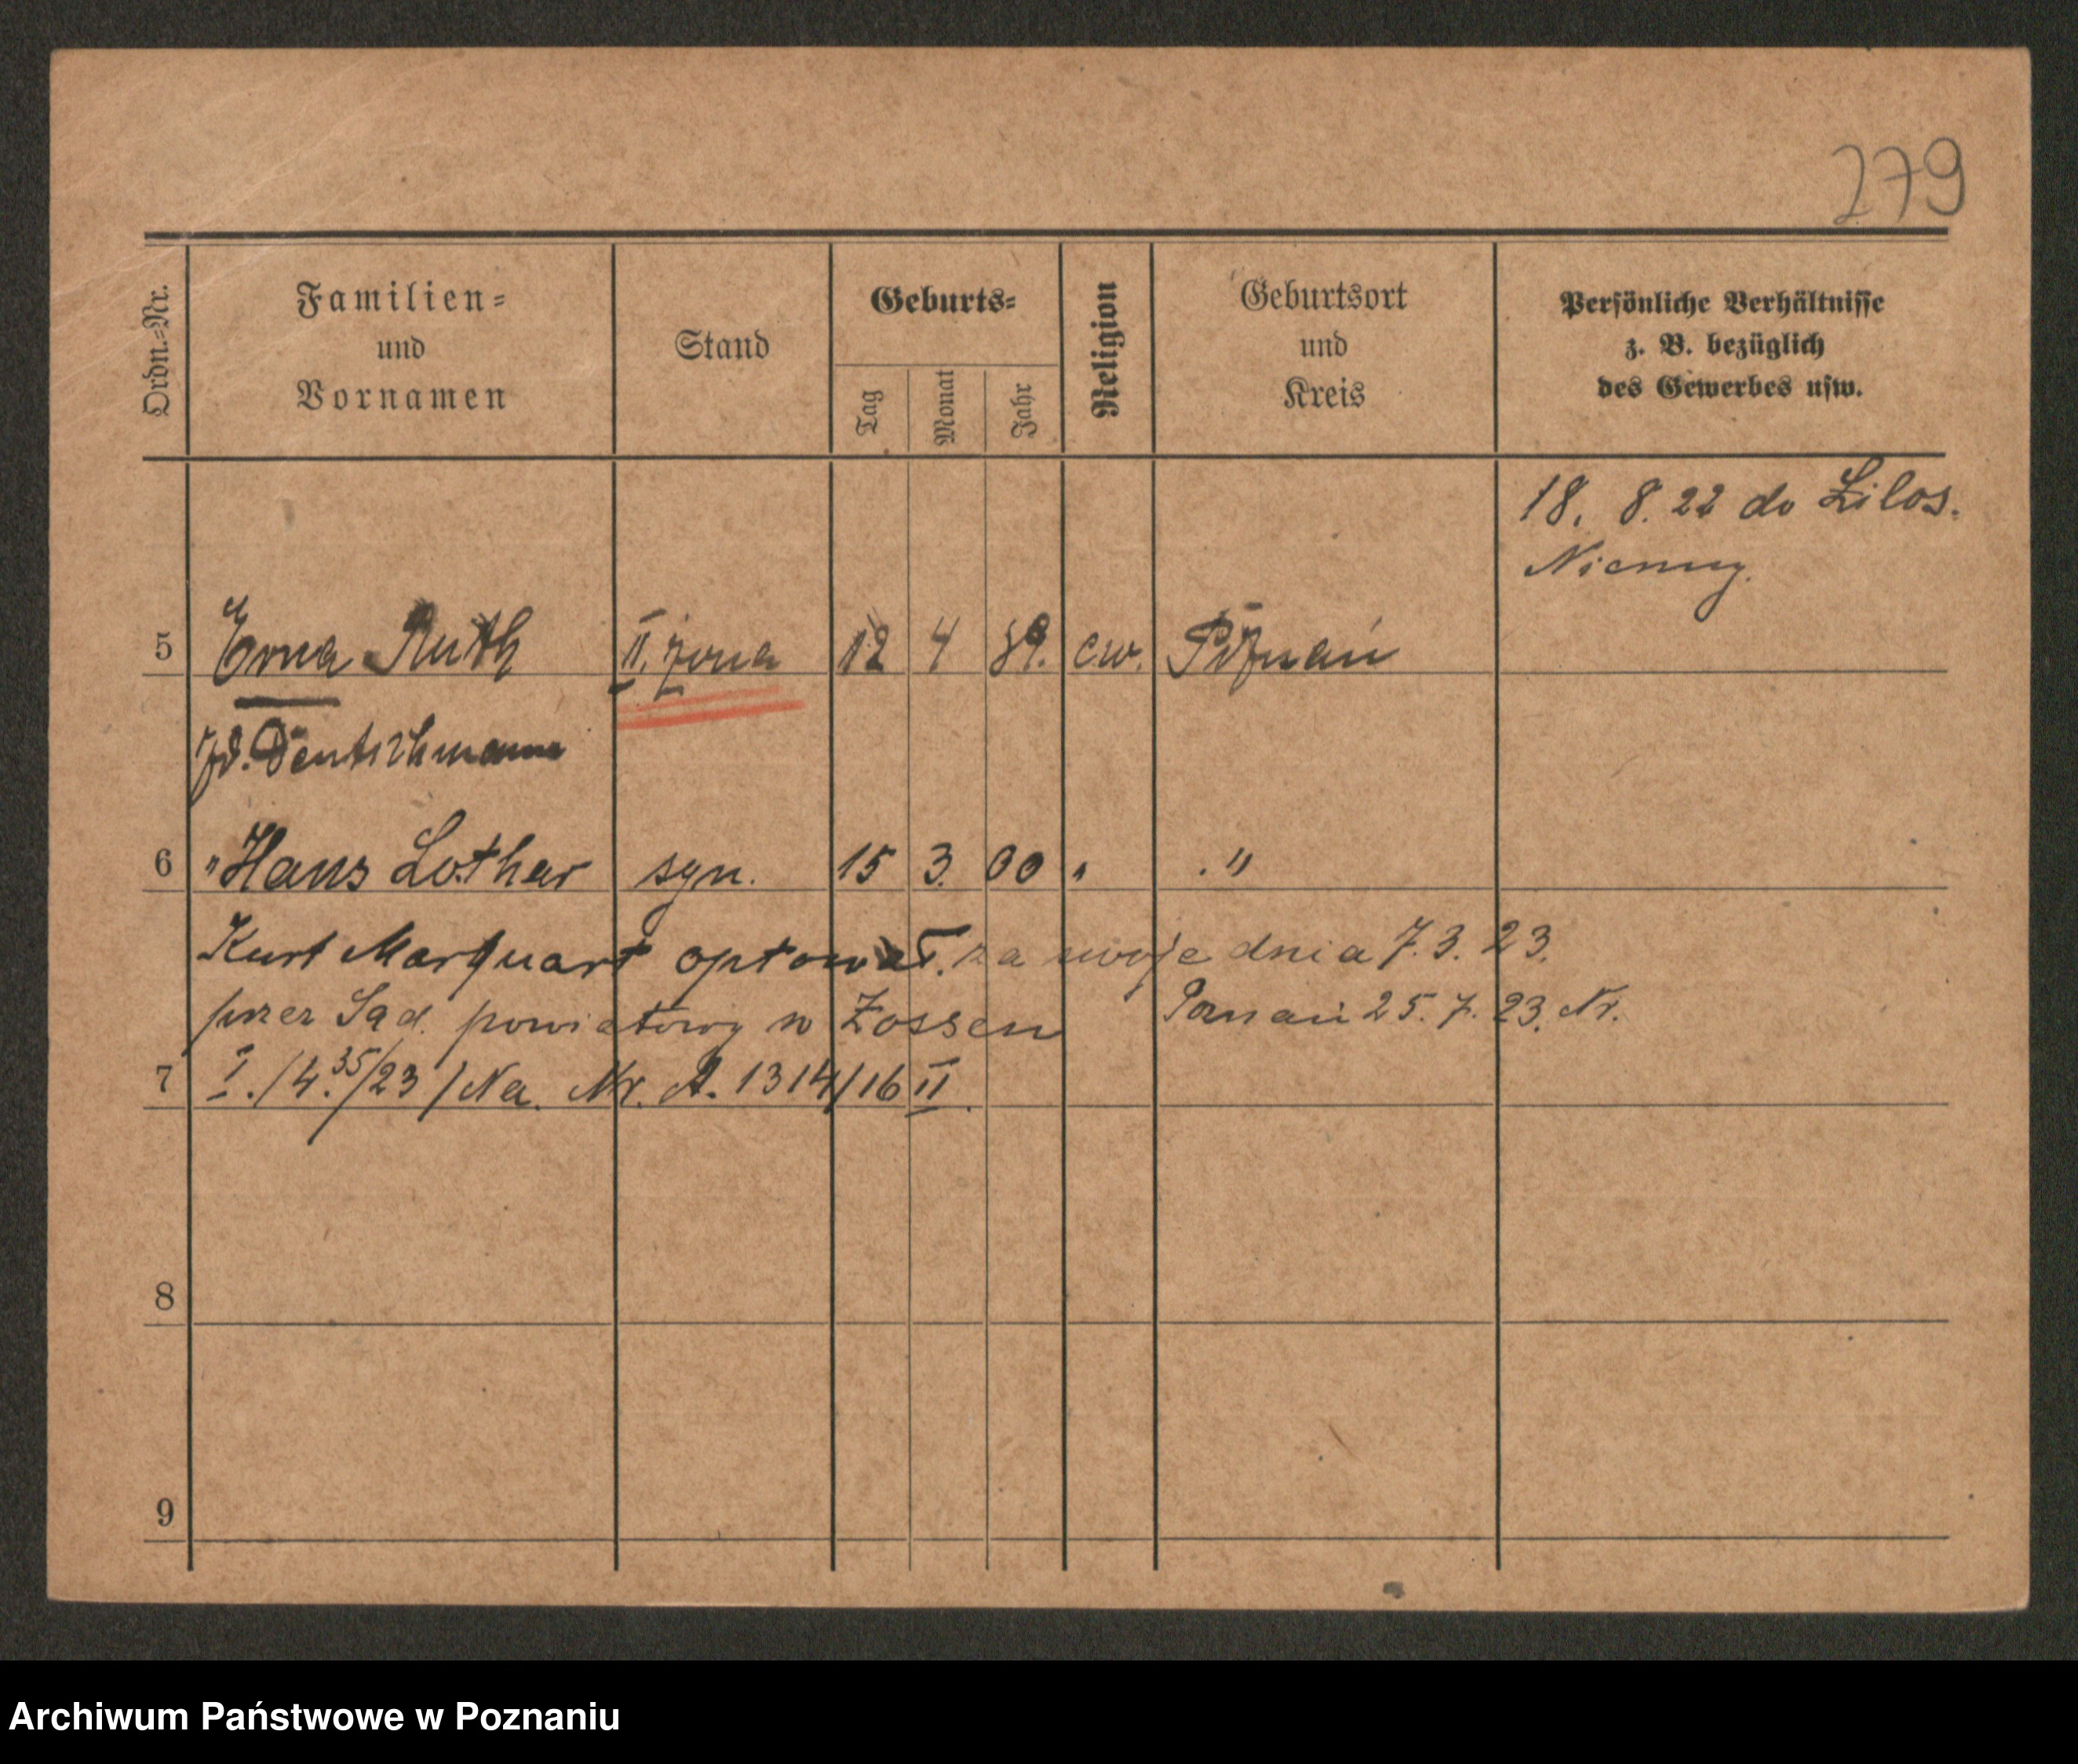 279
Ordn.=Nr.
Familien=
und
Vornamen
Stand
Geburts=
Tag
Monat
Jahr
Religion
Geburtsort
und
Kreis
Persönliche Verhältnisse
z. B. bezüglich
des Gewerbes usw.
18. 8. 22 do Lilos.
Niemcy.
5 Erna Ruth II. żona 12 4 89. ew. Poznań
Deutschmann
6 " Hans Lothar syn. 15 3. 00 " "
Kurt Marquart optował. za dnia 7. 3. 23.
przez Sąd. powiatowy w Zossen Poznań 25. 7. 23. Nr.
7 I./4.35/23/Na. Nr. A. 1314/16 II.
8
9
Archiwum Państwowe w Poznaniu